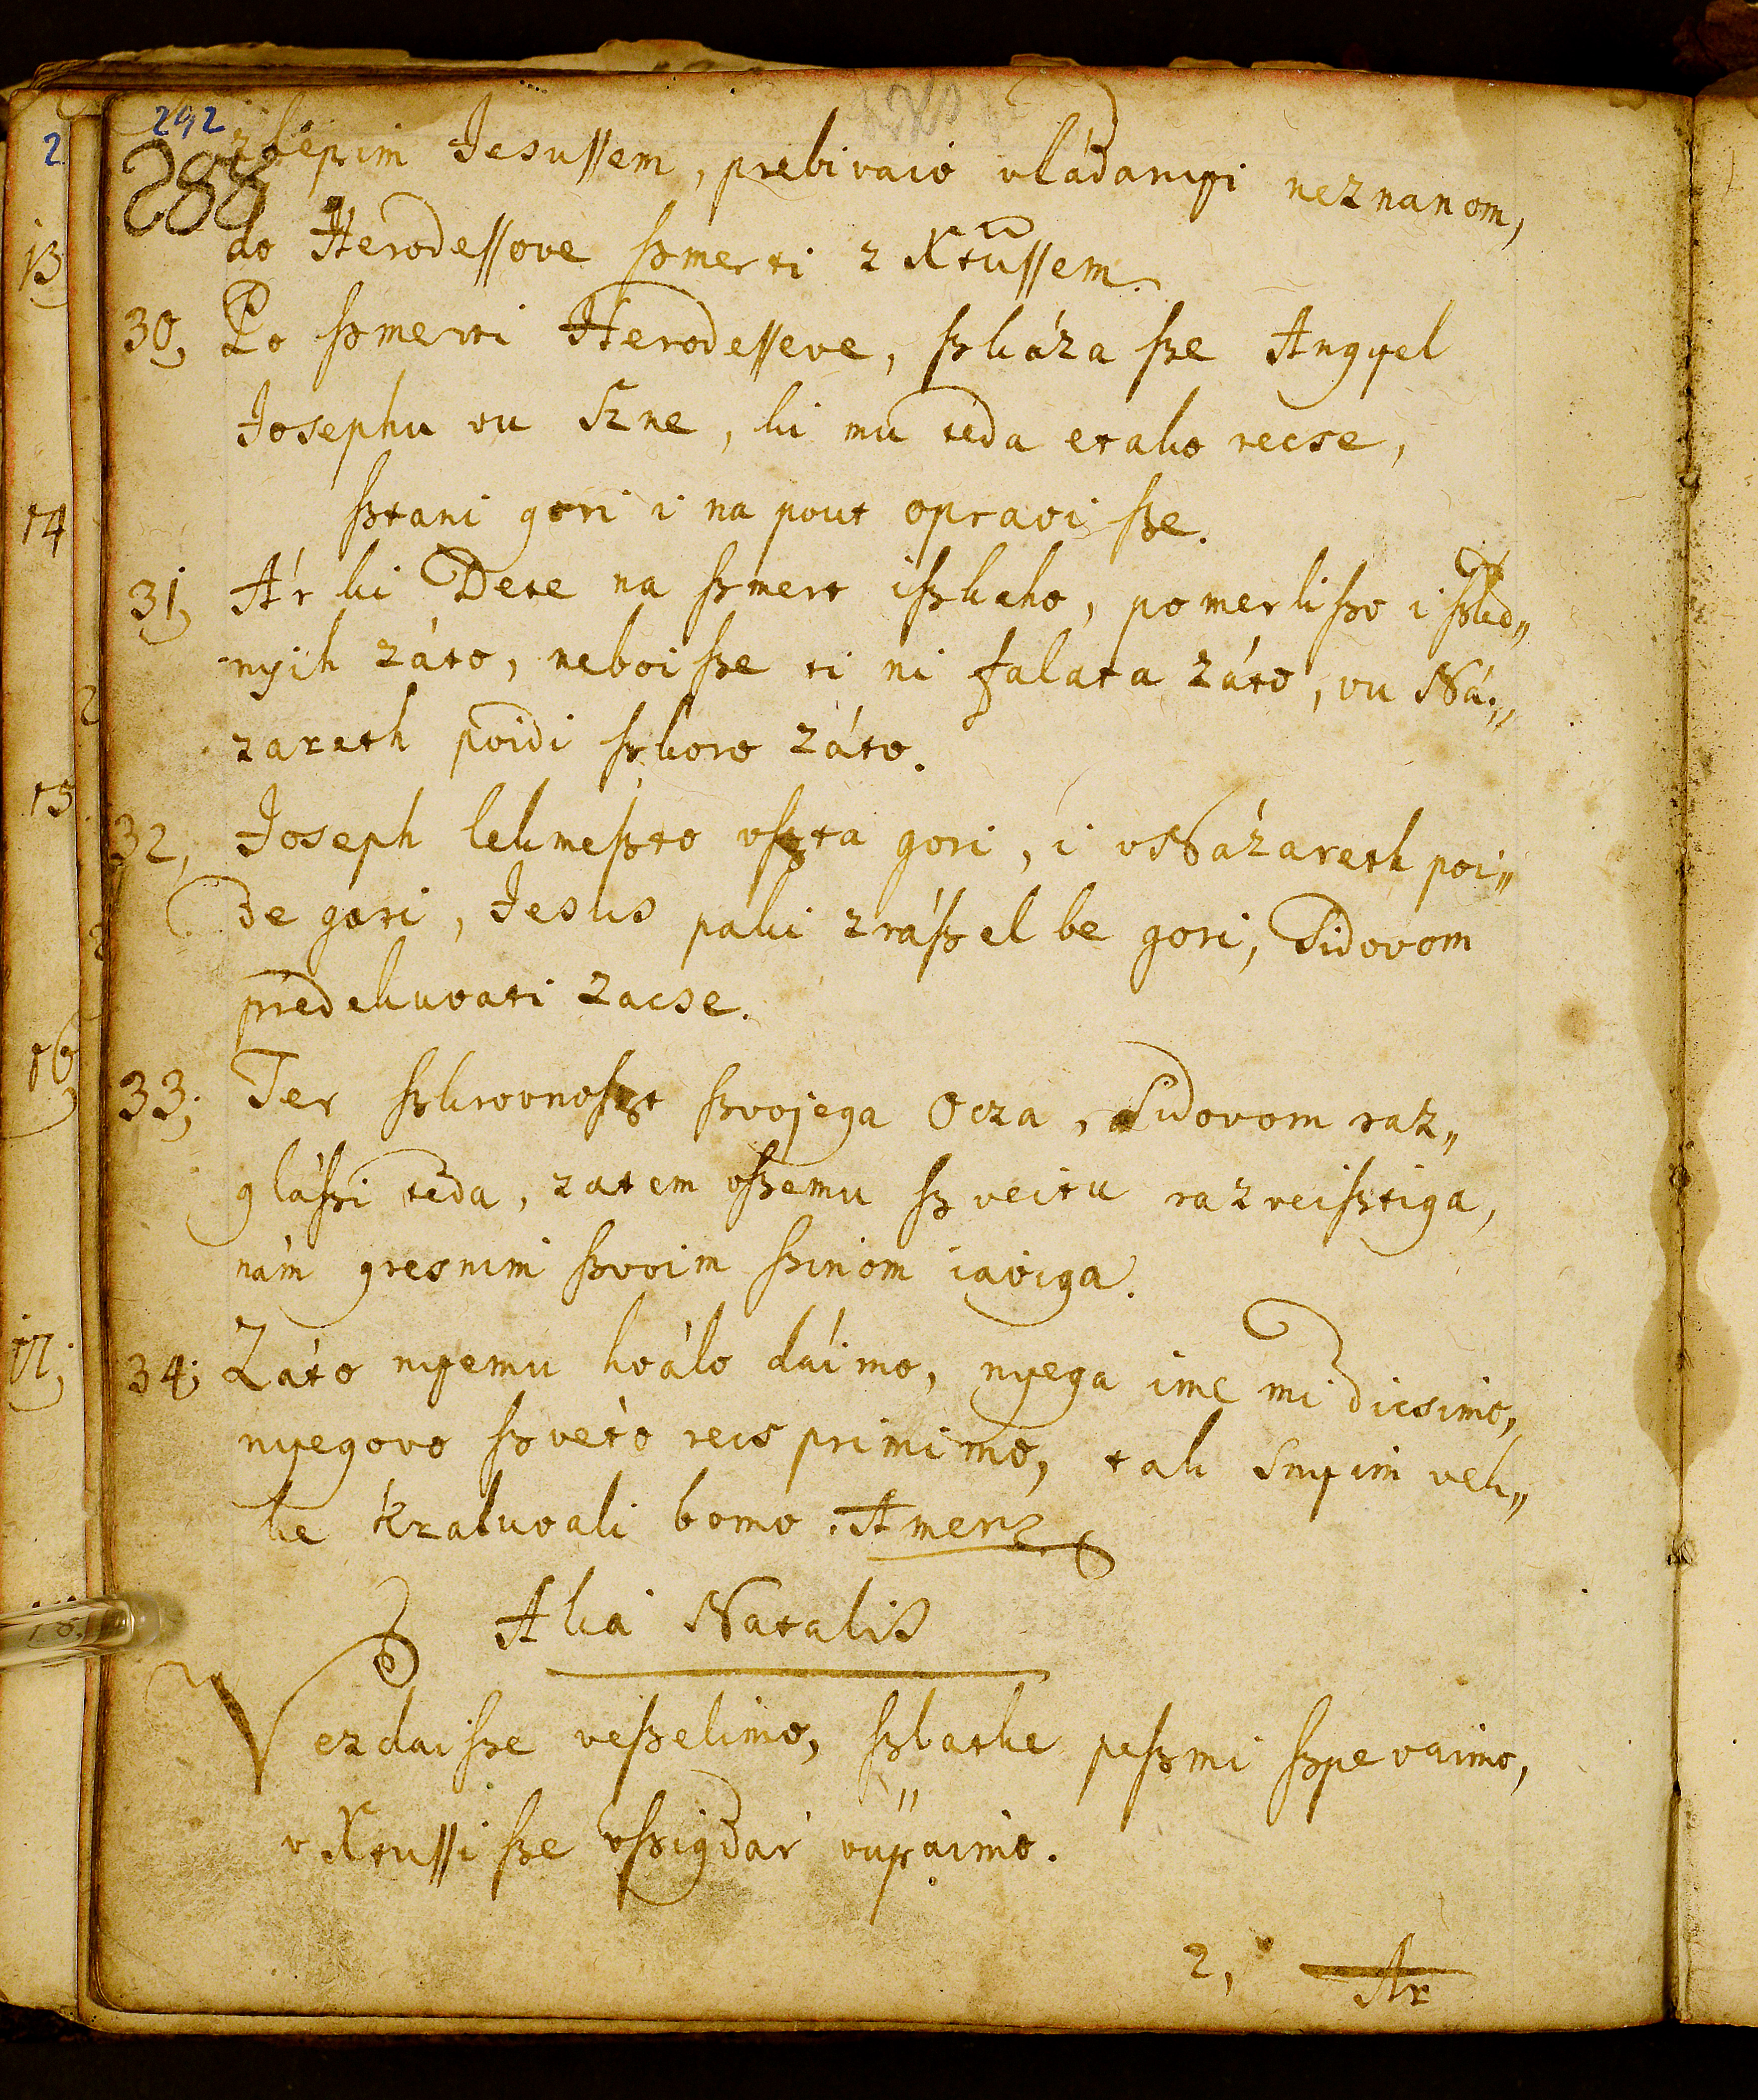 292
288
zlepim Jesussem, prebivaio vládanyi neznanom,
do Herodessove ſzmerti z Xtussem.
30, Po ſzmerti Herodesseve, ſzkáza ſze Angyel
Josephu vu Szne, ki mu teda etako recse,
ſztani gori i na pout opravi ſze.
31, Ár ki Dete na ſzmert iſzkaho, pomerliſzo i ſzkd„
nyih záto, neboi ſze ti ni falata záto, vu Ná„
zareth poidi ſzkoro záto.
32, Joseph lekmeſzto vſzta gori, i vNázareth poi„
de gori, Jesus paki zráſzel be gori, Sidovom
predekuvati zacse.
33; Ter ſzkrovnoſzt ſzvojega Ocza, Sidovom raz„
gláſzi teda, zatem vſzemu ſzveitu razveiſztiga,
nám gresnim ſzvoim ſzinom iaviga.
34; Záto nyemu hválo dáimo, nyega ime mi dicsimo,
nyegovo ſzvéto reis primimo, tak Snyim vek„
ke kraluvali bomo. Amen
Alia Natalis
Vezdaiſze veſzelimo, ſzlatke peſzmi ſzpevaimo,
v Xtussi ſze vſzigdár vüpaimo.
2, Ar
2
13
14
15
16
17;
18.